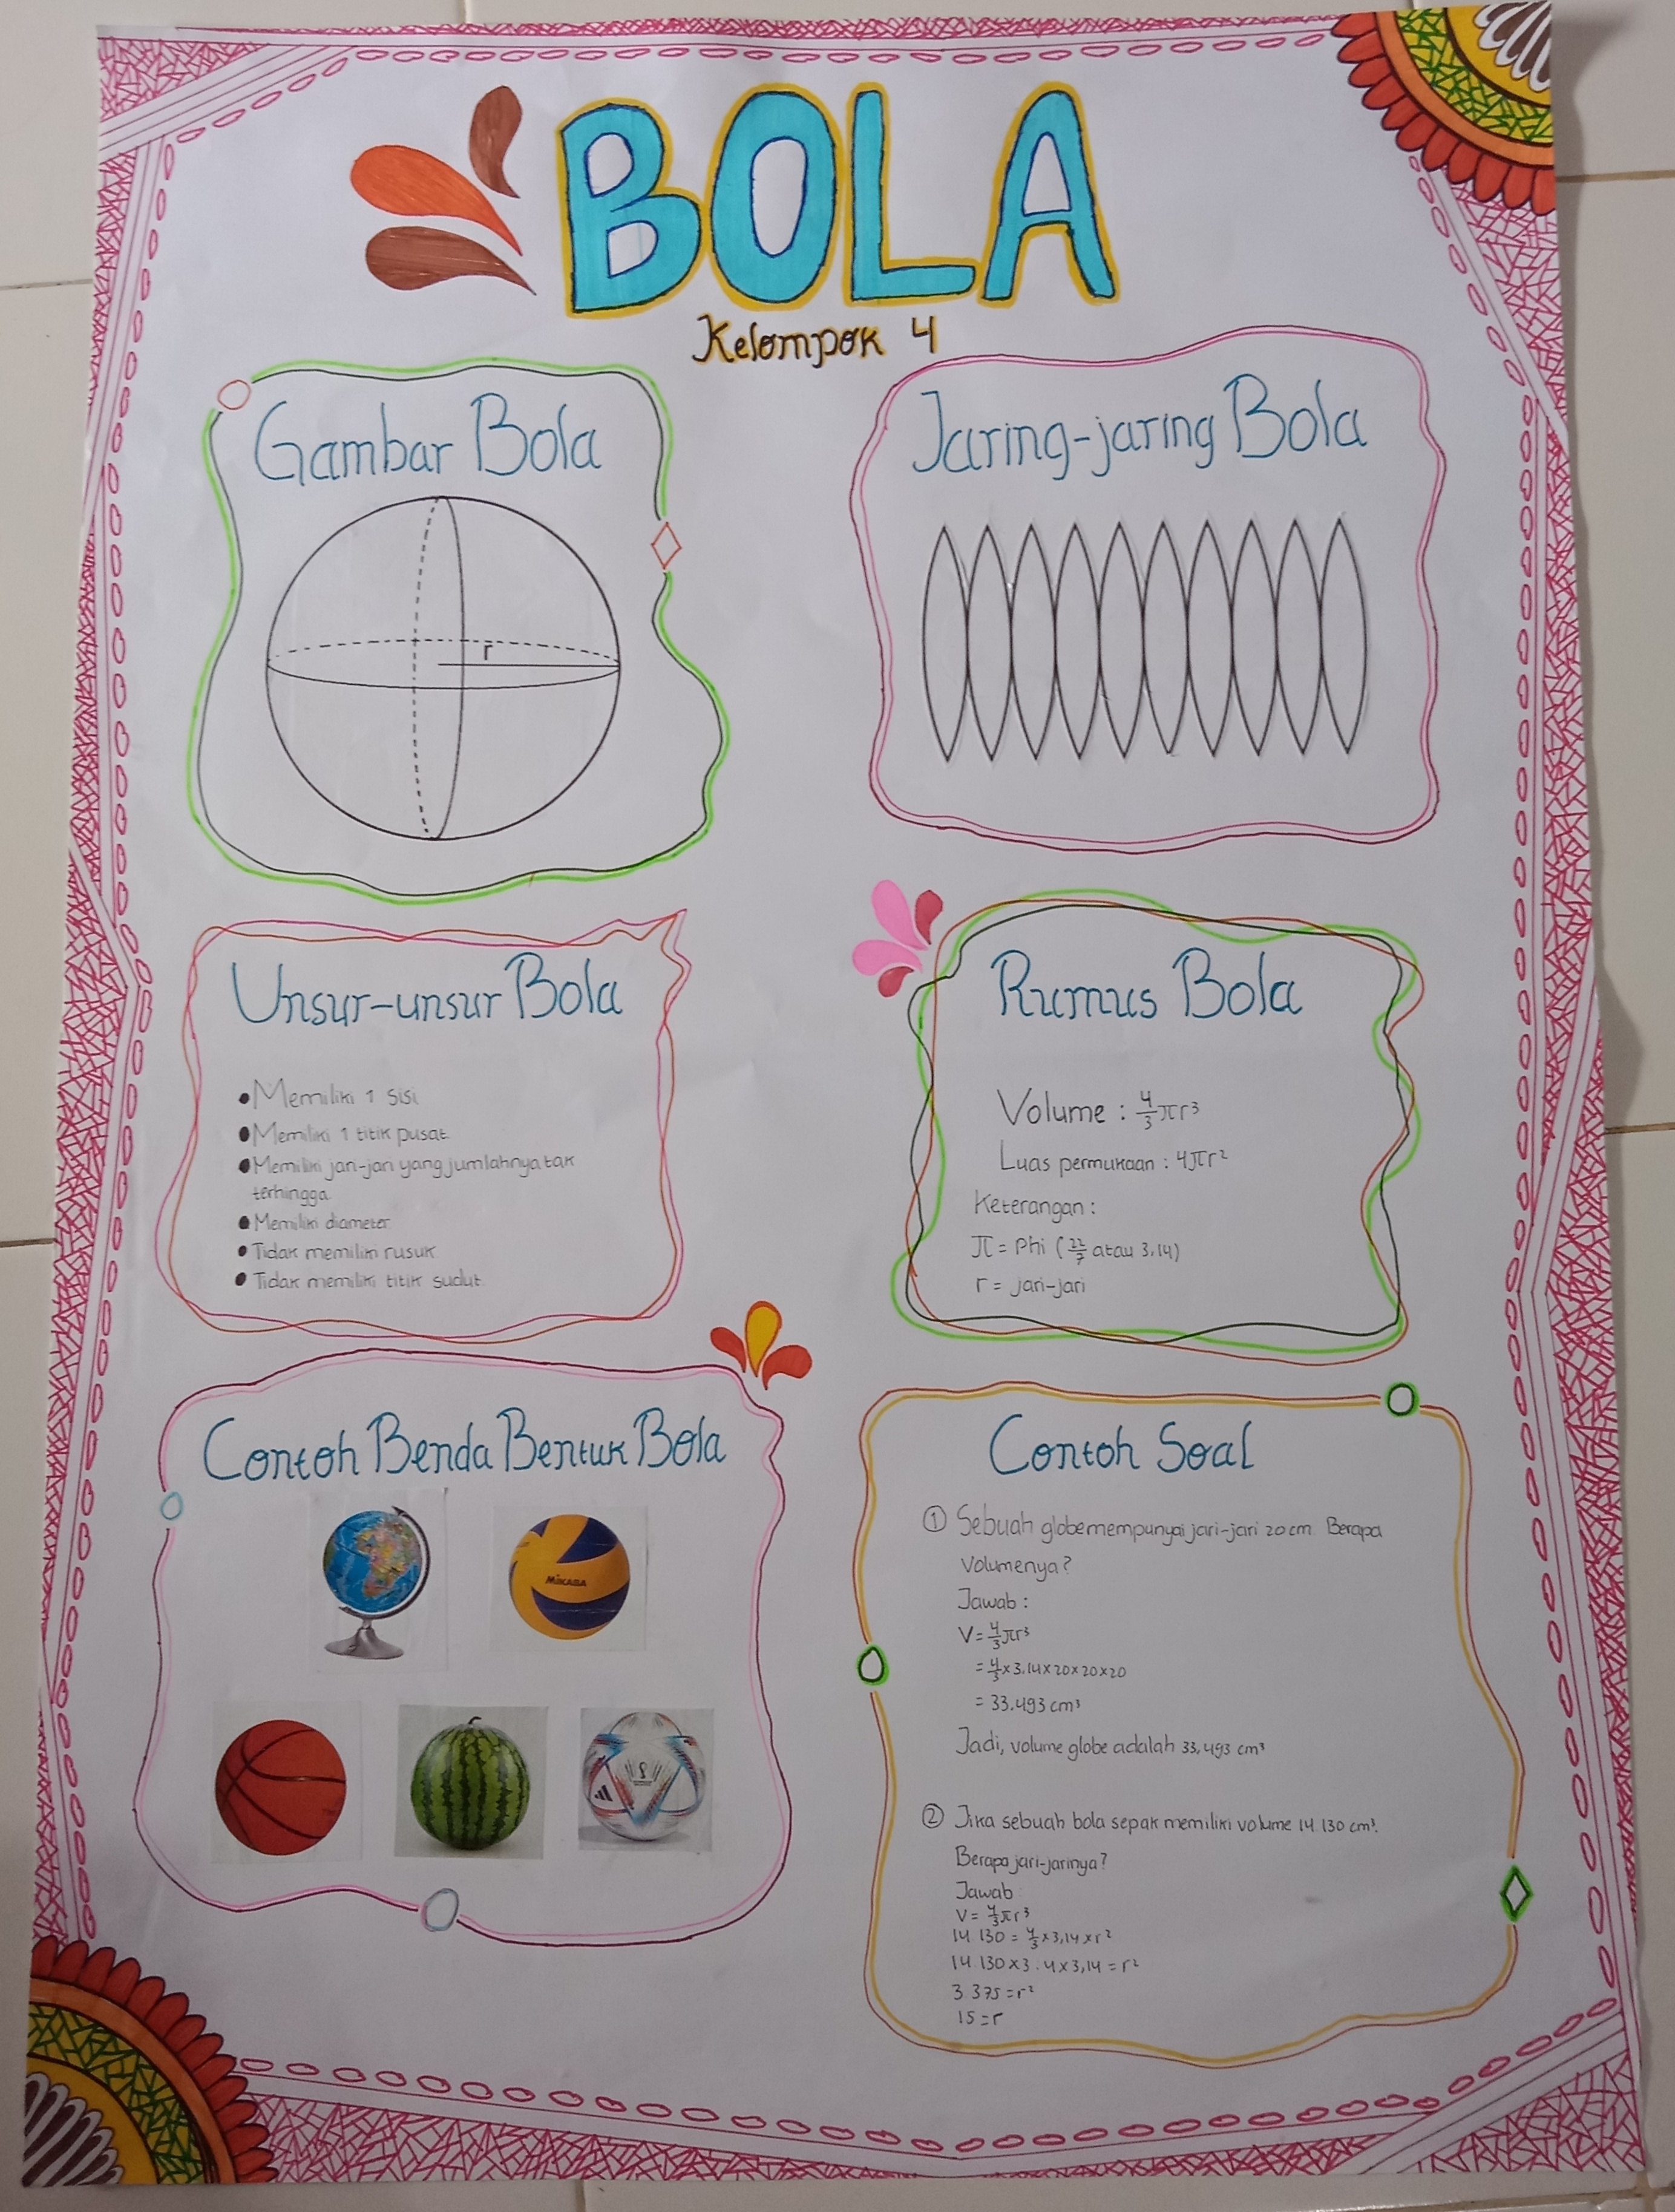 BOLA
Kelompok 4
Gambar Bola
r
Jaring-jaring Bola
Unsur-unsur Bola
• Memiliki 1 sisi
• Memiliki 1 titik pusat
• Memiliki jari-jari yang jumlahnya tak
terhingga
• Memiliki diameter
• Tidak memiliki rusuk
• Tidak memiliki titik sudut
Rumus Bola
Volume : 4/3 πr³
Luas permukaan : 4πr²
Keterangan :
π = Phi (22/7 atau 3,14)
r = jari-jari
Contoh Benda Bentuk Bola
MIKASA
Contoh Soal
① Sebuah globe mempunyai jari-jari 20 cm. Berapa
Volumenya?
Jawab :
V = 4/3 πr³
= 4/3 × 3,14 × 20 × 20 × 20
= 33.493 cm³
Jadi, volume globe adalah 33,493 cm³
② Jika sebuah bola sepak memiliki volume 14.130 cm³.
Berapa jari-jarinya?
Jawab
V = 4/3 πr³
14.130 = 4/3 × 3,14 × r²
14.130 × 3 : 4 × 3,14 = r²
3.375 = r²
15 = r